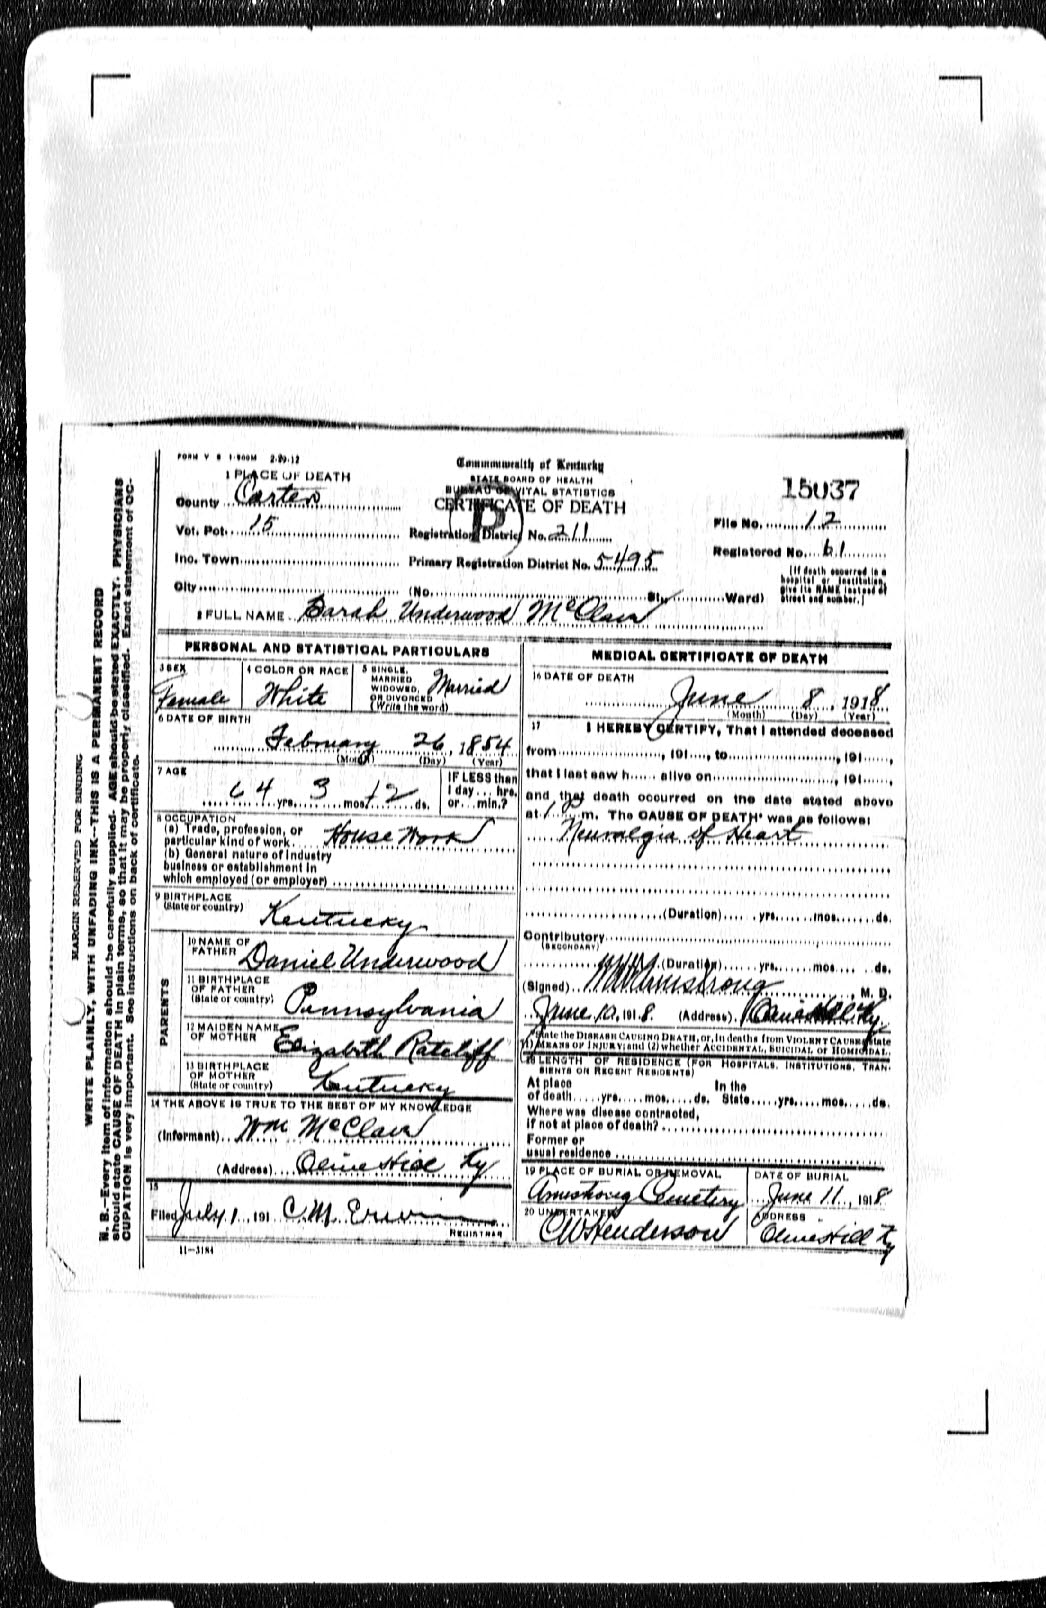 FORM V S 1-500M 2-29-12
Commonwealth of Kentucky
STATE BOARD OF HEALTH
BUREAU OF VITAL STATISTICS
CERTIFICATE OF DEATH
P
15037
1 PLACE OF DEATH
County Carter
Vot. Pct. 15
Inc. Town
City (No. St., Ward)
Registration District No. 211
Primary Registration District No. 5495
File No. 12
Registered No. 61
[If death occurred in a
hospital or institution,
give its NAME instead of
street and number.]
2 FULL NAME Sarah Underwood McClave
PERSONAL AND STATISTICAL PARTICULARS
3 SEX
Female
4 COLOR OR RACE
White
5 SINGLE,
MARRIED
WIDOWED,
OR DIVORCED
(Write the word)
Married
6 DATE OF BIRTH
February 26, 1854
(Month) (Day) (Year)
7 AGE
64 yrs. 3 mos. 12 ds.
IF LESS than
1 day... hrs.
or... min.?
8 OCCUPATION
(a) Trade, profession, or
particular kind of work House Work
(b) General nature of industry
business or establishment in
which employed (or employer)
9 BIRTHPLACE
(State or country)
Kentucky
PARENTS
10 NAME OF
FATHER Daniel Underwood
11 BIRTHPLACE
OF FATHER
(State or country) Pennsylvania
12 MAIDEN NAME
OF MOTHER Elizabeth Ratcliff
13 BIRTHPLACE
OF MOTHER
(State or country) Kentucky
14 THE ABOVE IS TRUE TO THE BEST OF MY KNOWLEDGE
(Informant) Wm McClave
(Address) Olive Hill Ky
15
Filed July 1, 191 C.M. Erwin
REGISTRAR
11-3184
MEDICAL CERTIFICATE OF DEATH
16 DATE OF DEATH
June 8, 1918
(Month) (Day) (Year)
17 I HEREBY CERTIFY, That I attended deceased
from , 191 , to , 191 ,
that I last saw h alive on , 191 ,
and that death occurred on the date stated above
at 1 P m. The CAUSE OF DEATH* was as follows:
Neuralgia of Heart
(Duration) yrs. mos. ds.
Contributory
(SECONDARY)
(Duration) yrs. mos. ds.
(Signed) Armstrong, M. D.
June 10, 1918 (Address) Olive Hill Ky.
*State the DISEASE CAUSING DEATH, or, in deaths from VIOLENT CAUSES, state
(1) MEANS OF INJURY; and (2) whether ACCIDENTAL, SUICIDAL OR HOMICIDAL.
18 LENGTH OF RESIDENCE (FOR HOSPITALS, INSTITUTIONS, TRAN-
SIENTS OR RECENT RESIDENTS)
At place In the
of death yrs. mos. ds. State yrs. mos. ds.
Where was disease contracted,
if not at place of death?
Former or
usual residence
19 PLACE OF BURIAL OR REMOVAL
Armstrong Cemetery
DATE OF BURIAL
June 11, 1918
20 UNDERTAKER
CW Henderson
ADDRESS
Olive Hill Ky
MARGIN RESERVED FOR BINDING
WRITE PLAINLY, WITH UNFADING INK--THIS IS A PERMANENT RECORD
N. B.--Every item of information should be carefully supplied. AGE should be stated EXACTLY. PHYSICIANS
should state CAUSE OF DEATH in plain terms, so that it may be properly classified. Exact statement of OC-
CUPATION is very important. See instructions on back of certificate.